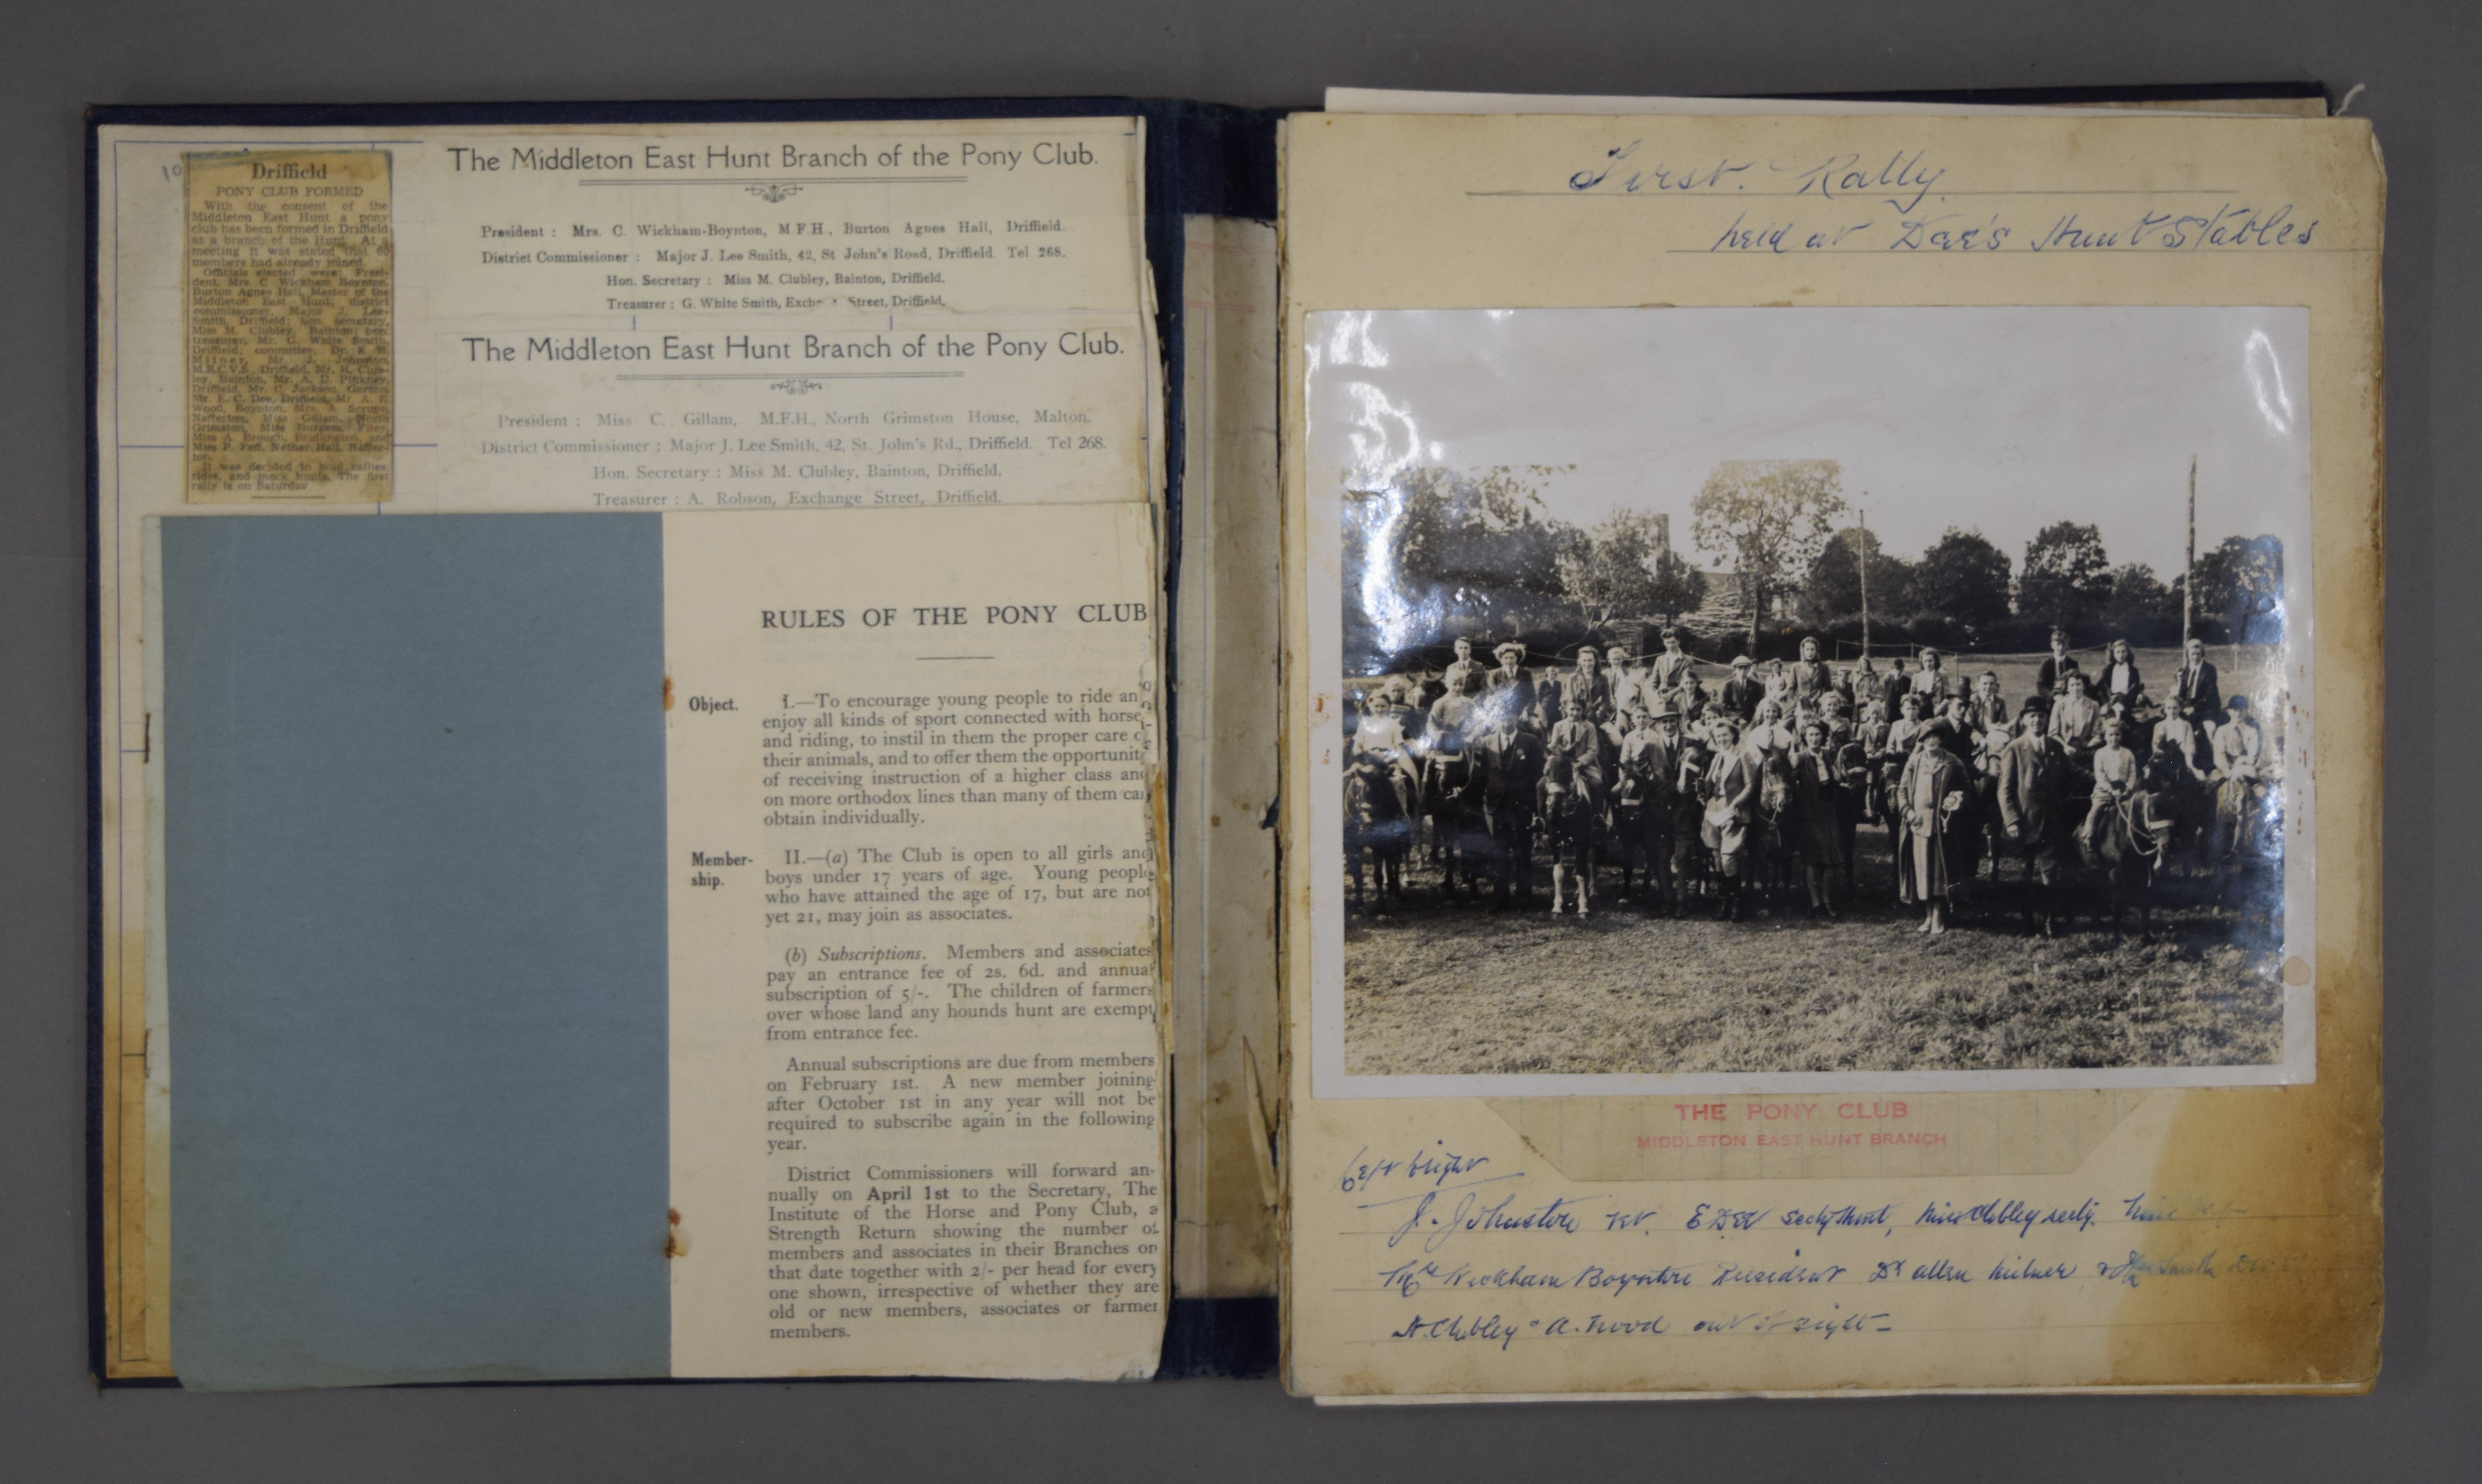 10
Driffield
PONY CLUB FORMED
With the consent of the
Middleton East Hunt a pony
club has been formed in Driffield
as a branch of the Hunt. At a
meeting it was stated that 60
members had already joined.
Officials elected were: Presi-
dent, Mrs. C. Wickham Boynton,
Burton Agnes Hall, Master of the
Middleton East Hunt; district
commissioner, Major J. Lee-
Smith, Driffield; hon. secretary,
Miss M. Clubley, Bainton; hon.
treasurer, Mr. G. White Smith,
Driffield; committee, Dr. E. H.
Milner, Mr. J. Johnston,
M.R.C.V.S., Driffield, Mr. H. Club-
ley, Bainton, Mr. A. D. Pinkney,
Driffield, Mr. C. Jackson, Garton,
Mr. E. C. Dee, Driffield, Mr. A. E.
Wood, Boynton, Mrs. A.
Nafferton, Miss Gillam, North
Grimston, Miss Burgess, Filey,
Miss A. Brough, Bridlington, and
Miss P. Nether Hall, Naffer-
ton.
It was decided to hold rallies,
rides, and mock hunts. The first
rally is on Saturday
The Middleton East Hunt Branch of the Pony Club.
President : Mrs. C. Wickham-Boynton, M F.H., Burton Agnes Hall, Driffield.
District Commissioner : Major J. Lee Smith, 42, St. John's Road, Driffield. Tel 268.
Hon. Secretary : Miss M. Clubley, Bainton, Driffield.
Treasurer : G. White Smith, Exch Street, Driffield.
The Middleton East Hunt Branch of the Pony Club.
President : Miss C. Gillam, M.F.H., North Grimston House, Malton.
District Commissioner : Major J. Lee Smith, 42, St. John's Rd., Driffield. Tel 268.
Hon. Secretary : Miss M. Clubley, Bainton, Driffield.
Treasurer : A. Robson, Exchange Street, Driffield.
RULES OF THE PONY CLUB
Object.
I.—To encourage young people to ride an
enjoy all kinds of sport connected with horse
and riding, to instil in them the proper care o
their animals, and to offer them the opportunit
of receiving instruction of a higher class and
on more orthodox lines than many of them can
obtain individually.
Member-
ship.
II.—(a) The Club is open to all girls and
boys under 17 years of age. Young people
who have attained the age of 17, but are not
yet 21, may join as associates.
(b) Subscriptions. Members and associates
pay an entrance fee of 2s. 6d. and annual
subscription of 5/-. The children of farmers
over whose land any hounds hunt are exempt
from entrance fee.
Annual subscriptions are due from members
on February 1st. A new member joining
after October 1st in any year will not be
required to subscribe again in the following
year.
District Commissioners will forward an-
nually on April 1st to the Secretary, The
Institute of the Horse and Pony Club, a
Strength Return showing the number of
members and associates in their Branches on
that date together with 2/- per head for every
one shown, irrespective of whether they are
old or new members, associates or farmer
members.
First. Rally.
held at Dee's Hunt Stables
THE PONY CLUB
MIDDLETON EAST HUNT BRANCH
Left to right
J. Johnston E Dee Secty Hunt, Miss Clubley secty. Miss
Mrs Wickham Boynton President Dr allen Milner, Smith
H. Clubley & A. Wood out of sight -